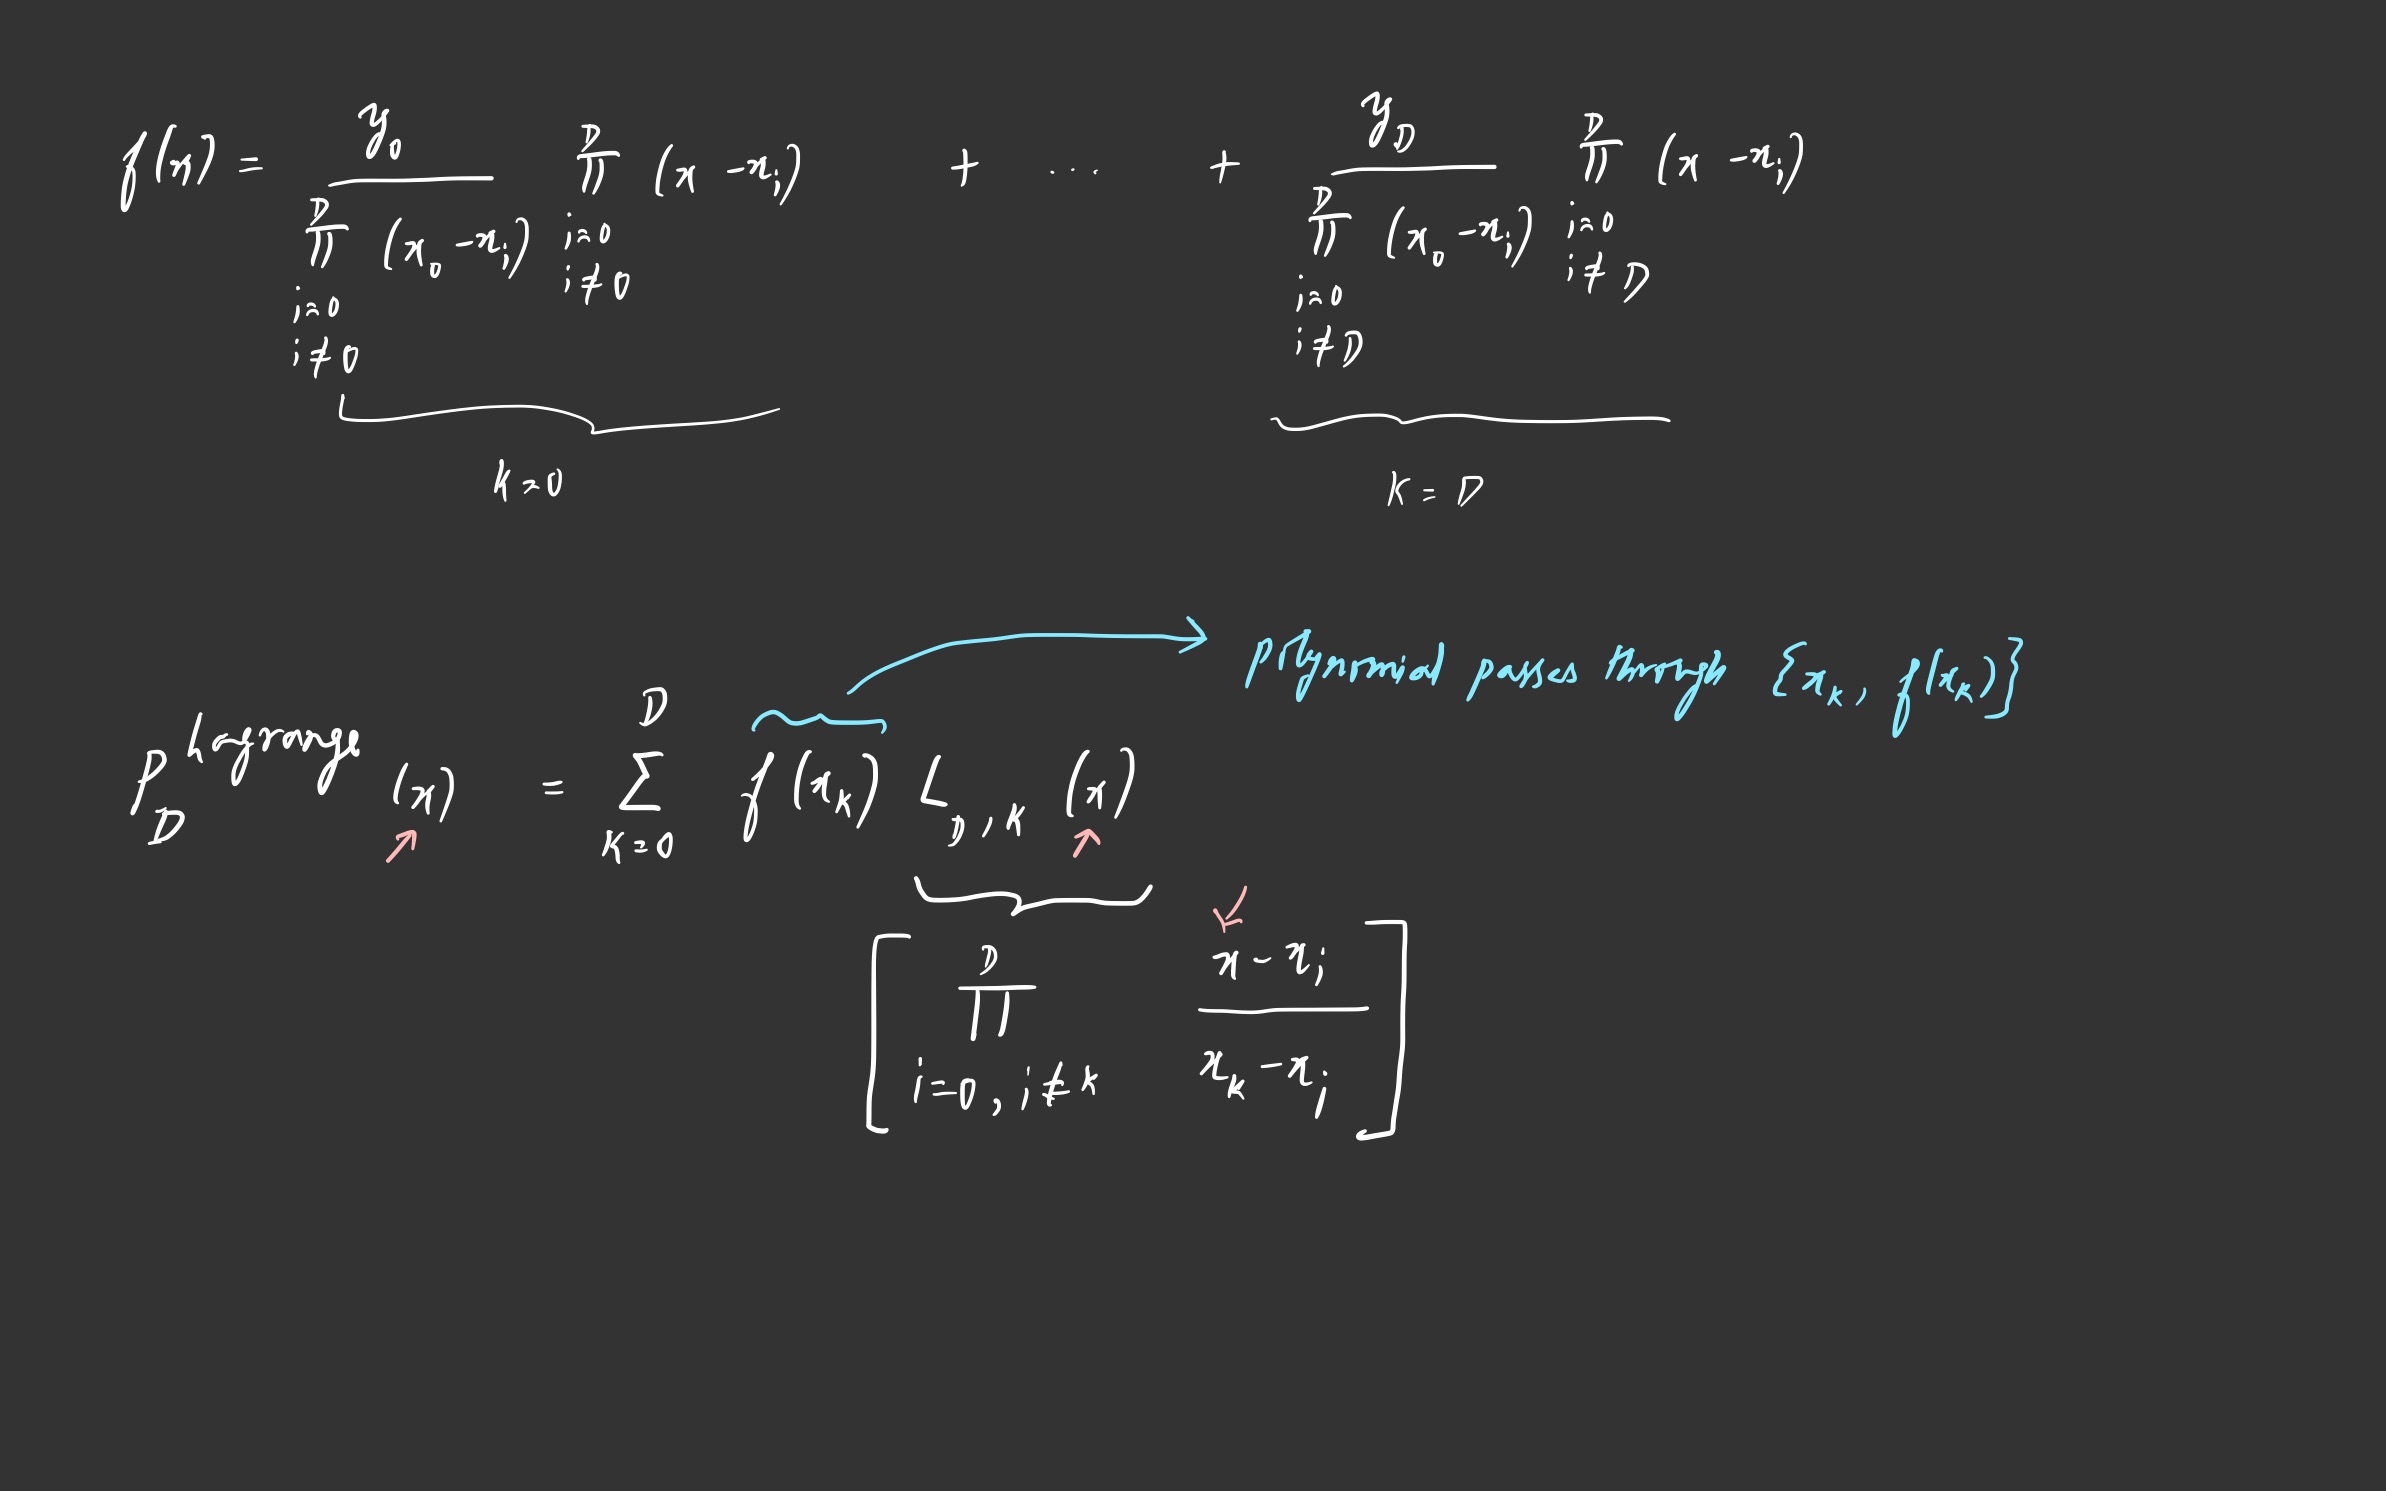 f(x) = y_0 / ∏_{i=0, i≠0}^{D} (x_0 - x_i) ∏_{i=0, i≠0}^{D} (x - x_i) + ... + y_D / ∏_{i=0, i≠D}^{D} (x_0 - x_i) ∏_{i=0, i≠D}^{D} (x - x_i)
k=0 K = D
polynomial passes through {x_k, f(x_k)}
P_D^{Lagrange} (x) = ∑_{K=0}^{D} f(x_k) L_{D,K} (x)
[ ∏_{i=0, i≠k}^{D} x - x_i / x_k - x_i ]